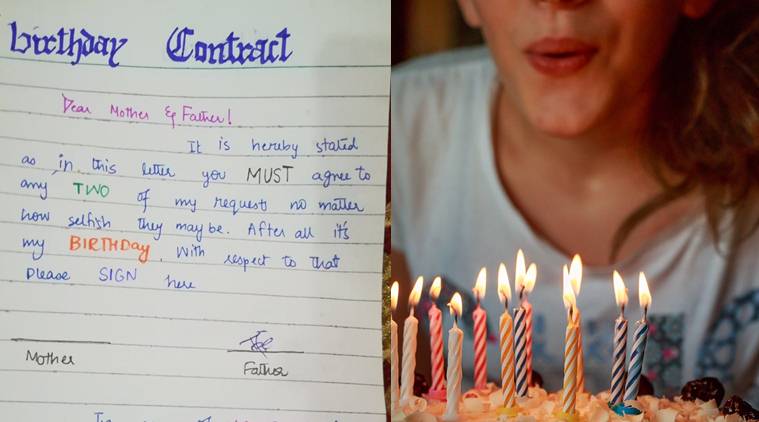 birthday Contract
Dear Mother & Father!
It is hereby stated
as in this letter you MUST agree to
any TWO of my requests no matter
how selfish they may be. After all it's
my BIRTHDAY. With respect to that
please SIGN here
Mother
Father